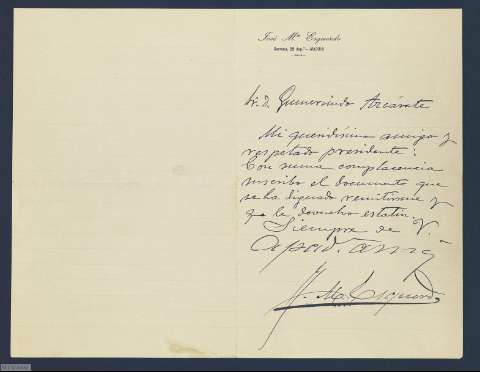 José Mª Esquerdo
MADRID
Sr. D. Gumersindo Azcárate
Mi queridísimo amigo y
respetado presidente:
Con suma complacencia
suscribo el documento que
se ha dignado remitirme y
que le devuelvo
Siempre de V.
J. M. Esquerdo